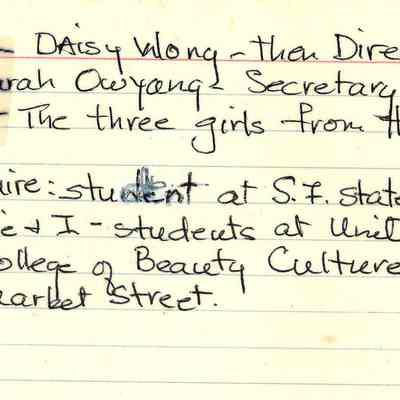 - Daisy Wong - then Dire
rah Owyang - Secretary
- The three girls from H
ire: student at S.F. State
e & I - students at Unit
ollege of Beauty Culture
arket Street.